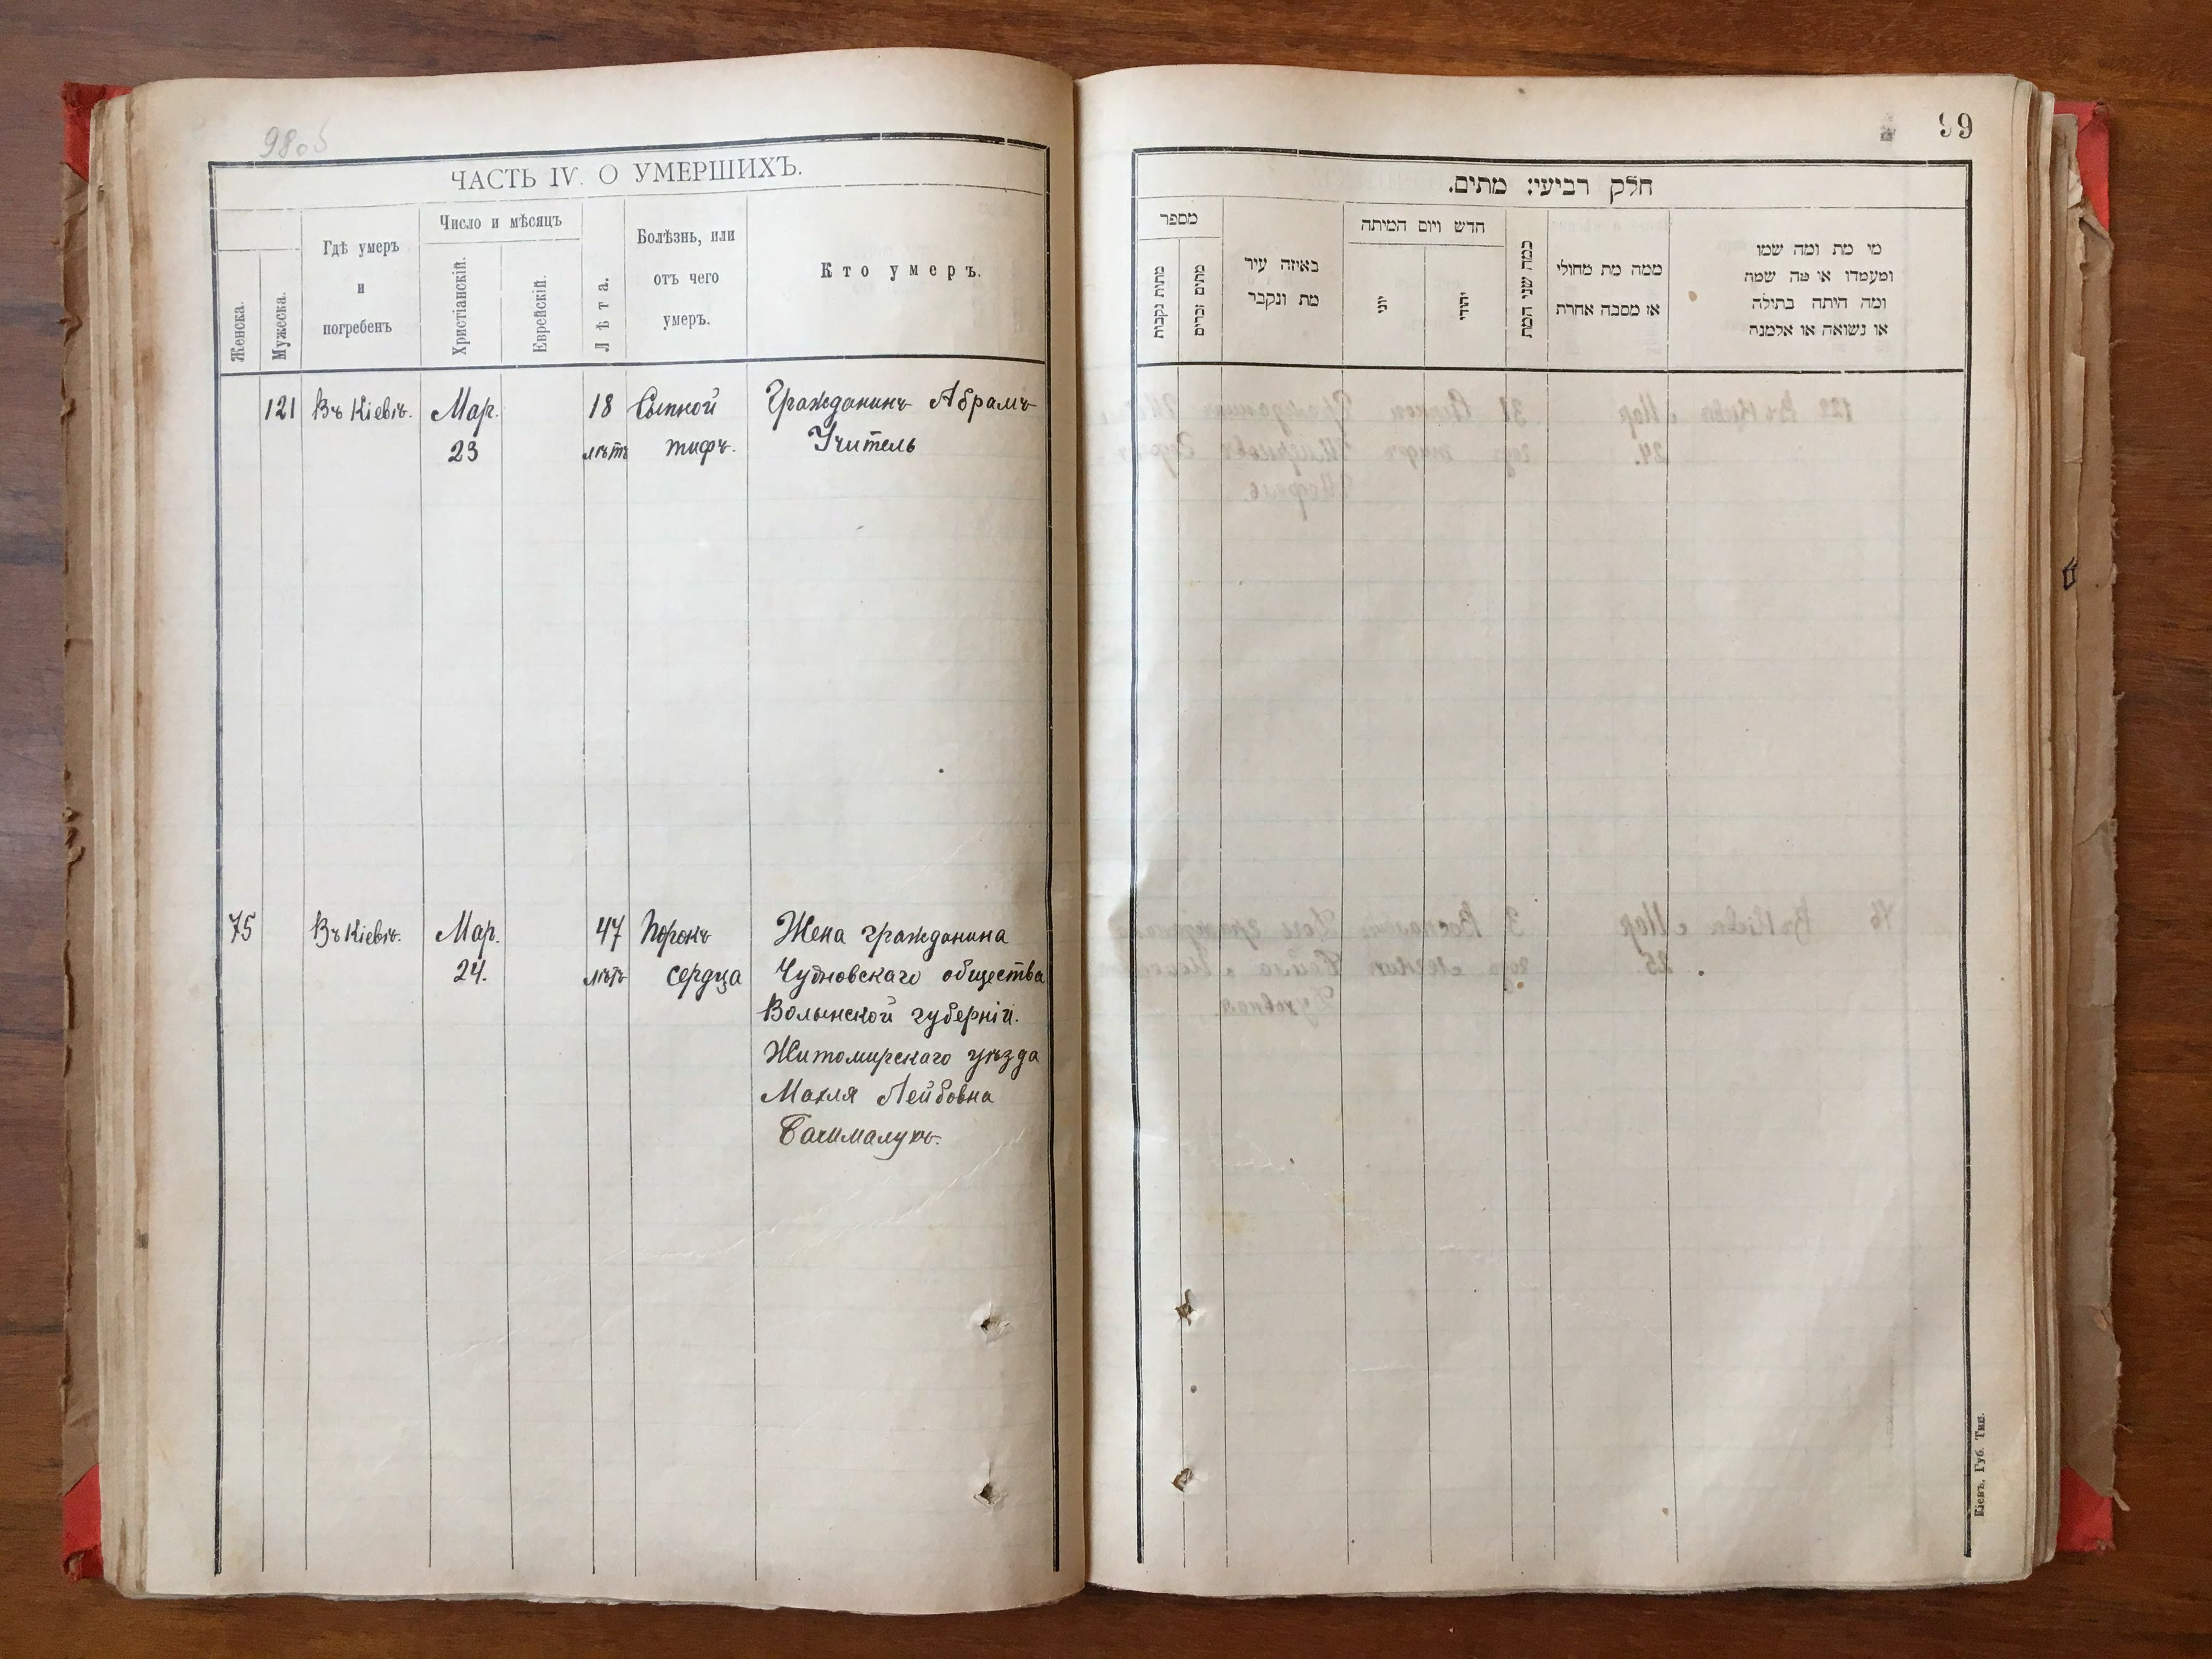 98об
ЧАСТЬ IV. О УМЕРШИХЪ.
Женска.
Мужеска.
Гдѣ умеръ
и
погребенъ
Число и мѣсяцъ
Христіанскій.
Еврейскій.
Лѣта.
Болѣзнь, или
отъ чего
умеръ.
Кто умеръ.
121 Въ Кіевѣ. Мар. 18 Сыпной Гражданинъ Абрамъ
23 лѣтъ тифъ. Учитель
75 Въ Кіевѣ. Мар. 47 Порокъ Жена гражданина
24. лѣтъ сердца Чудновскаго общества
Волынской губерній.
Житомирскаго уѣзда
Махля Лейбовна
99
חלק רביעי: מתים.
מספר
מתות נקבות
מתים זכרים
באיזה עיר
מת ונקבר
חדש ויום המיתה
יוני
יהודי
כמה שני המת
ממה מת מחולי
או מסבה אחרת
מי מת ומה שמו
ומעמדו או מה שמה
ומה היתה בתולה
או נשואה או אלמנה
Кіевъ, Губ. Тип.